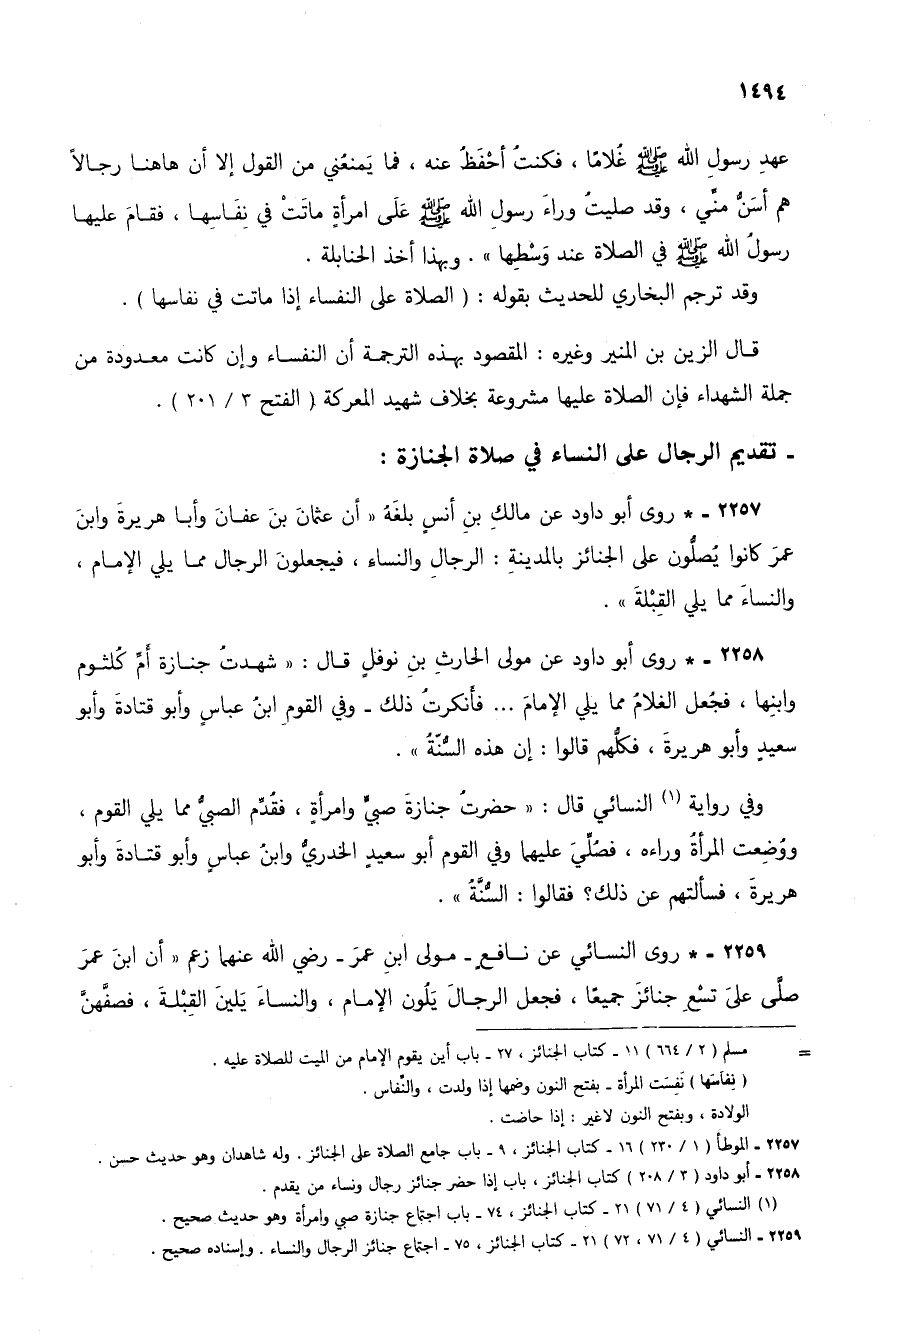 ١٤٩٤
عهدِ رسولِ الله ﷺ غُلامًا ، فكنتُ أحْفَظُ عنه ، فما يَمنعُني من القول إلا أن هاهنا رجالاً
هم أسَنُّ منِّي ، وقد صليتُ وراءَ رسولِ الله ﷺ عَلَى امرأةٍ ماتَتْ في نِفَاسِها ، فقامَ عليها
رسولُ الله ﷺ في الصلاة عند وَسْطِها » . وبهذا أخذ الحنابلة .
وقد ترجم البخاري للحديث بقوله : ( الصلاة على النفساء إذا ماتت في نفاسها ) .
قال الزين بن المنير وغيره : المقصود بهذه الترجمة أن النفساء وإن كانت معدودة من
جملة الشهداء فإن الصلاة عليها مشروعة بخلاف شهيد المعركة ( الفتح ٣ / ٢٠١ ) .
ـ تقديم الرجال على النساء في صلاة الجنازة :
٢٢٥٧ ـ * روى أبو داود عن مالكِ بنِ أنسٍ بلغَهُ « أن عثمانَ بنَ عفانَ وأبا هريرةَ وابنَ
عمرَ كانوا يُصلُّون على الجنائز بالمدينةِ : الرجالِ والنساء ، فيجعلونَ الرجال مما يلي الإمام ،
والنساءَ مما يلي القِبْلةَ » .
٢٢٥٨ ـ * روى أبو داود عن مولى الحارثِ بنِ نوفلٍ قال : « شهدتُ جنازة أمِّ كُلثوم
وابنِها ، فجُعل الغلامُ مما يلي الإمامَ ... فأنكرتُ ذلك ـ وفي القومِ ابنُ عباسٍ وأبو قتادةَ وأبو
سعيدٍ وأبو هريرةَ ، فكلُّهم قالوا : إن هذه السُّنَّةُ » .
وفي رواية (١) النسائي قال : « حضرتُ جنازةَ صبيٍّ وامرأةٍ ، فقُدِّم الصبيُّ مما يلي القوم ،
ووُضِعت المرأةُ وراءه ، فصُلِّيَ عليهما وفي القوم أبو سعيدٍ الخدريُّ وابنُ عباسٍ وأبو قتادةَ وأبو
هريرةَ ، فسألتهم عن ذلك؟ فقالوا : السُّنَّةُ » .
٢٢٥٩ ـ * روى النسائي عن نافعٍ ـ مولى ابنِ عمرَ ـ رضي الله عنهما زعم « أن ابنَ عمرَ
صلَّى علىَ تسْعِ جنائزَ جميعًا ، فجعل الرجالَ يَلُون الإمام ، والنساءَ يَلينَ القِبْلةَ ، فصفَّهنَّ
= مسلم ( ٢ / ٦٦٤ ) ١١ ـ كتاب الجنائز ، ٢٧ ـ باب أين يقوم الإمام من الميت للصلاة عليه .
( نِفَاسَها ) نَفسَت المرأة ـ بفتح النون وضمها إذا ولدت ، والنَّفاس .
الولادة ، وبفتح النون لاغير : إذا حاضت .
٢٢٥٧ ـ الموطأ ( ١ / ٢٣٠ ) ١٦ ـ كتاب الجنائز ، ٩ ـ باب جامع الصلاة على الجنائز . وله شاهدان وهو حديث حسن .
٢٢٥٨ ـ أبو داود ( ٣ / ٢٠٨ ) كتاب الجنائز ، باب إذا حضر جنائز رجال ونساء من يقدم .
(١) النسائي ( ٤ / ٧١ ) ٢١ ـ كتاب الجنائز ، ٧٤ ـ باب اجتماع جنازة صبي وامرأة وهو حديث صحيح .
٢٢٥٩ ـ النسائي ( ٤ / ٧١ ، ٧٢ ) ٢١ ـ كتاب الجنائز ، ٧٥ ـ اجتماع جنائز الرجال والنساء . وإسناده صحيح .